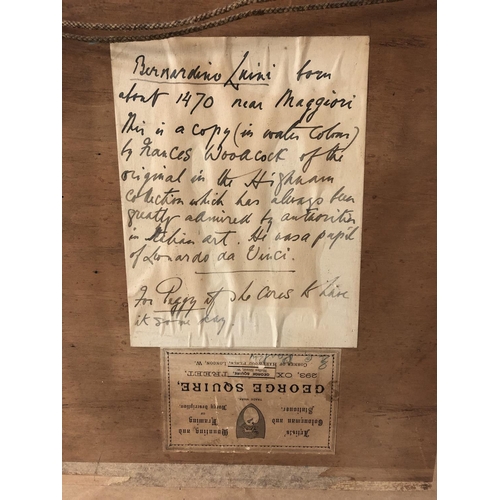 Bernardino Luini born
about 1470 near Maggiori
This is a copy (in water colour)
by Frances Woodcock of the
original in the Highnam
collection which has always been
greatly admired by authorities
in Italian art. He was a pupil
of Leonardo da Vinci.
For Peggy if she cares to have
it some day.
Artists'
Colourman and
Stationer.
Mounting and
Framing
of
Every Description.
TRADE MARK
GEORGE SQUIRE,
293, OXFORD STREET,
Corner of Harewood Place, London, W.